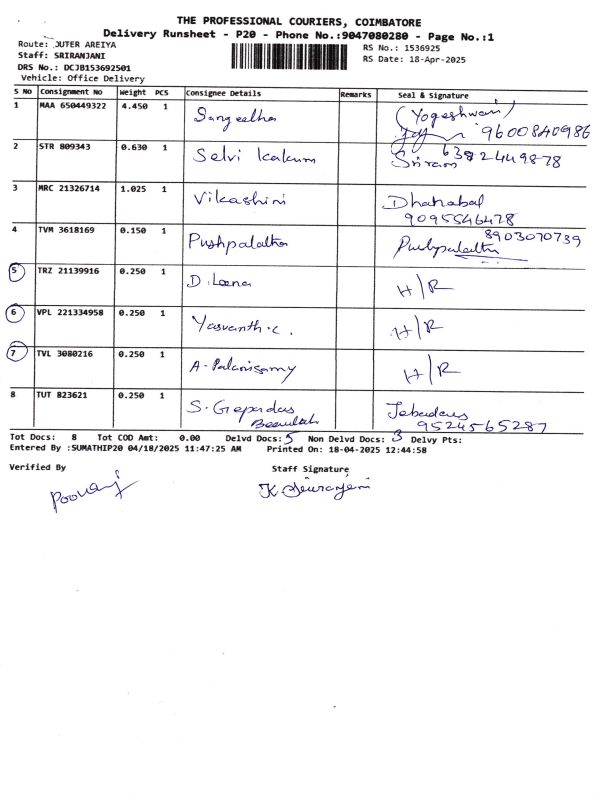 THE PROFESSIONAL COURIERS, COIMBATORE
Delivery Runsheet - P20 - Phone No.:9047080280 - Page No.:1
Route: OUTER AREIYA
Staff: SRIRANJANI
DRS No.: DCJB153692501
Vehicle: Office Delivery
RS No.: 1536925
RS Date: 18-Apr-2025
S NO Consignment No Weight PCS Consignee Details Remarks Seal & Signature
1 MAA 650449322 4.450 1 Sangeetha (Yogeshwari)
9600840986
2 STR 809343 0.630 1 Selvi Sriram 6382449878
3 MRC 21326714 1.025 1 Vikashini Dhanabal
9095546478
4 TVM 3618169 0.150 1 Pushpalatha Pushpalatha 8903070739
5 TRZ 21139916 0.250 1 D. Leena H/R
6 VPL 221334958 0.250 1 Yasvanth.c. H/R
7 TVL 3080216 0.250 1 A. Palanisamy H/R
8 TUT 823621 0.250 1 S.
9524565287
Tot Docs: 8 Tot COD Amt: 0.00 Delvd Docs: 5 Non Delvd Docs: 3 Delvy Pts:
Entered By :SUMATHIP20 04/18/2025 11:47:25 AM Printed On: 18-04-2025 12:44:58
Verified By Staff Signature